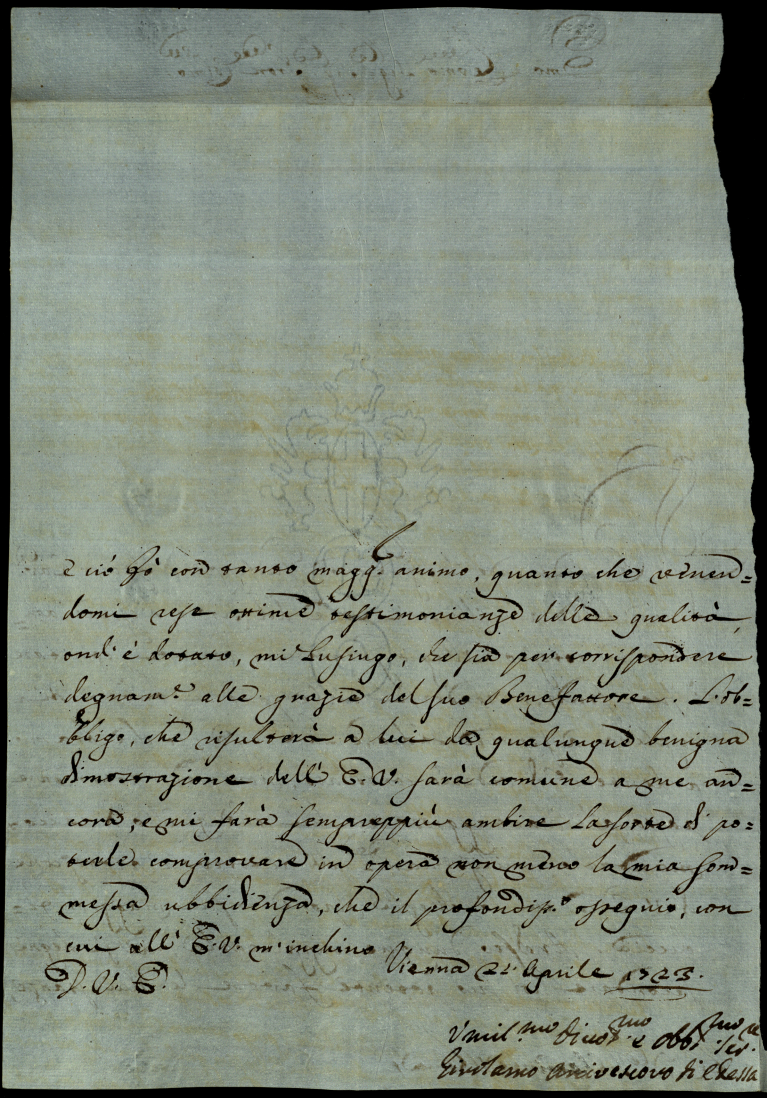 e ciò fò con tanto magg.r animo, quanto che venen=
domi rese ottime testimonianze delle qualità,
ond' è dotato, mi lusingo, che sia per corrispondere
degnam.te alle grazie del suo Benefattore. L'ob=
bligo, che risulterà a lui da qualunque benigna
dimostrazione dell' E.V. sarà comune a me an=
cora, e mi farà sempreppiù ambire la sorte di po=
terle comprovare in opera non meno la mia som=
messa ubbidienza, che il profondiss.o ossequio, con
cui all' E.V. m'inchino
Vienna 21 Aprile 1723.
D. V. E.
Umil.mo Divot.mo e Obb.mo Ser.re
Girolamo Arcivescovo di Edessa